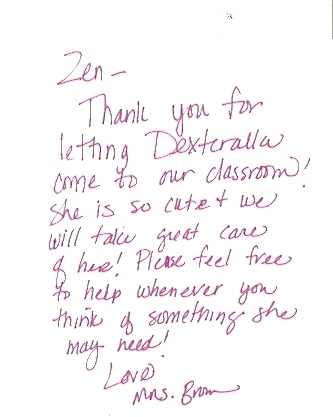 Zen -
Thank you for
letting Dexteralla
come to our classroom!
She is so cute & we
will take great care
of here! Please feel free
to help whenever you
think of something she
may need!
Love
Mrs. Brown